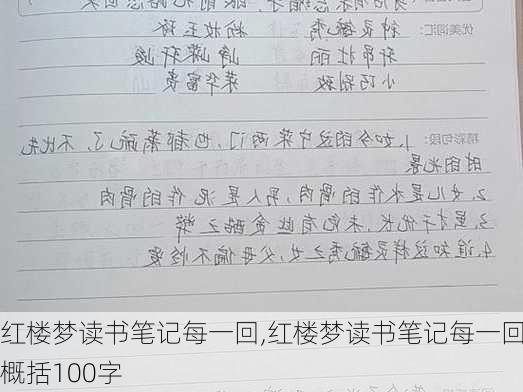 优美词汇: 钟灵毓秀 粉妆玉琢
轩昂壮丽 峥嵘轩峻
小巧别致 荣华富贵
精彩句段: 1.如今的这宁荣两门,也都萧疏了,不比先
时的光景
2.女儿是水作的骨肉,男人是泥作的骨肉
3.虽才干优长,未免有些贪酷之弊
4.谁知这样灵毓秀之女,父母偏不怜爱
红楼梦读书笔记每一回,红楼梦读书笔记每一回
概括100字